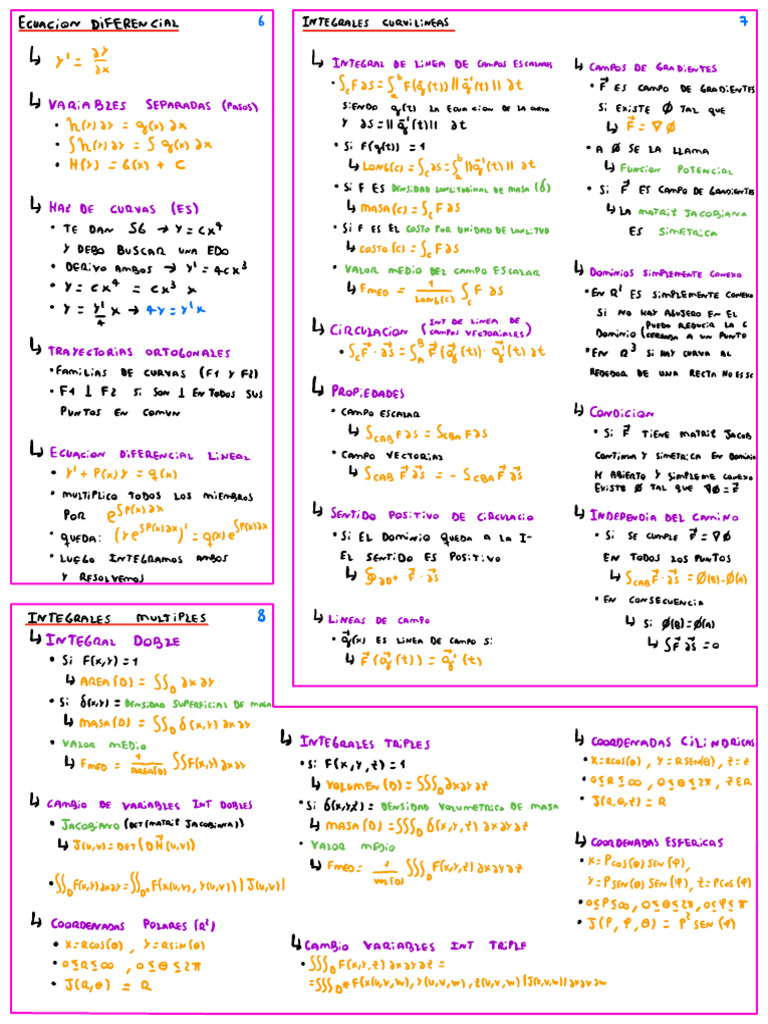 ECUACION DIFERENCIAL 6
↳ Y' = ∂Y/∂X
↳ VARIABLES SEPARADAS (PASOS)
• h(Y)∂Y = g(X)∂X
• ∫h(Y)∂Y = ∫g(X)∂X
• H(Y) = G(X) + C
↳ HAZ DE CURVAS (ES)
• TE DAN SG → Y = CX⁴
Y DEBO BUSCAR UNA EDO
• DERIVO AMBOS → Y' = 4CX³
• Y = CX⁴ = CX³ X
• Y = Y'/4 X → 4Y = Y'X
↳ TRAYECTORIAS ORTOGONALES
• FAMILIAS DE CURVAS (F1 Y F2)
• F1 ⊥ F2 SI SON ⊥ EN TODOS SUS
PUNTOS EN COMUN
↳ ECUACION DIFERENCIAL LINEAL
• Y' + P(X)Y = Q(X)
• MULTIPLICO TODOS LOS MIEMBROS
POR e^∫P(X)∂X
• QUEDA: (Y e^∫P(X)∂X)' = Q(X)e^∫P(X)∂X
• LUEGO INTEGRAMOS AMBOS
Y RESOLVEMOS
INTEGRALES CURVILINEAS 7
↳ INTEGRAL DE LINEA DE CAMPOS ESCALARES
• ∫c F∂S = ∫a^b F(g̅(t)) ||g̅'(t)|| ∂t
SIENDO g(t) LA ECUACION DE LA CURVA
Y ∂S = ||g̅'(t)|| ∂t
• SI F(g(t)) = 1
↳ LONG(C) = ∫c ∂S = ∫a^b ||g̅'(t)|| ∂t
• SI F ES DENSIDAD LONGITUDINAL DE MASA (δ)
↳ MASA(C) = ∫c F∂S
• SI F ES EL COSTO POR UNIDAD DE LONGITUD
↳ COSTO(C) = ∫c F∂S
• VALOR MEDIO DEL CAMPO ESCALAR
↳ FMED = 1/LONG(C) ∫c F ∂S
↳ CIRCULACION (INT DE LINEA DE
CAMPOS VECTORIALES)
• ∫c F⃗ · ∂s⃗ = ∫A^B F⃗(g⃗(t)) · g⃗'(t) ∂t
↳ PROPIEDADES
• CAMPO ESCALAR
↳ ∫CAB F∂S = ∫CBA F∂S
• CAMPO VECTORIAL
↳ ∫CAB F⃗ ∂s⃗ = - ∫CBA F⃗ ∂s⃗
↳ SENTIDO POSITIVO DE CIRCULACIO
• SI EL DOMINIO QUEDA A LA I-
EL SENTIDO ES POSITIVO
↳ ∮∂D+ F⃗ · ∂s⃗
↳ LINEAS DE CAMPO
• g⃗(x) ES LINEA DE CAMPO SI:
↳ F⃗(g⃗(t)) = g⃗'(t)
↳ CAMPOS DE GRADIENTES
• F⃗ ES CAMPO DE GRADIENTES
SI EXISTE Ø TAL QUE
↳ F⃗ = ∇Ø
• A Ø SE LA LLAMA
↳ FUNCION POTENCIAL
• SI F⃗ ES CAMPO DE GRADIENTES
↳ LA MATRIZ JACOBIANA
ES SIMETRICA
↳ DOMINIOS SIMPLEMENTE CONEXO
• EN R² ES SIMPLEMENTE CONEXO
SI NO HAY AGUJERO EN EL
PUEDO REDUCIR LA C
DOMINIO (CERRADA A UN PUNTO
• EN R³ SI HAY CURVA AL
REDEDOR DE UNA RECTA NO ES SC
↳ CONDICION
• SI F⃗ TIENE MATRIZ JACOB
CONTINUA Y SIMETRICA EN DOMINIO
H ABIERTO Y SIMPLEME CONEXO
EXISTE Ø TAL QUE ∇Ø = F⃗
↳ INDEPENDIA DEL CAMINO
• SI SE CUMPLE F⃗ = ∇Ø
EN TODOS LOS PUNTOS
↳ ∫CAB F⃗ · ∂s⃗ = Ø(B) - Ø(A)
• EN CONSECUENCIA
↳ SI Ø(B) = Ø(A)
↳ ∫F⃗ ∂s⃗ = 0
INTEGRALES MULTIPLES 8
↳ INTEGRAL DOBLE
• SI F(X,Y) = 1
↳ AREA(D) = ∬D ∂X ∂Y
• SI δ(X,Y) = DENSIDAD SUPERFICIAL DE MASA
↳ MASA(D) = ∬D δ(X,Y) ∂X∂Y
• VALOR MEDIO
↳ FMED = 1/AREA(D) ∬F(X,Y)∂X∂Y
↳ CAMBIO DE VARIABLES INT DOBLES
• JACOBIANO (DET(MATRIZ JACOBIANA))
↳ J(U,V) = DET(DH̅(U,V))
• ∬D F(X,Y)∂X∂Y = ∬D* F(X(U,V), Y(U,V)) |J(U,V)|
↳ COORDENADAS POLARES (R²)
• X = RCOS(θ), Y = RSIN(θ)
• 0≤R≤∞, 0≤θ≤2π
• J(R,θ) = R
↳ INTEGRALES TRIPLES
• SI F(X,Y,Z) = 1
↳ VOLUMEN(D) = ∭D ∂X∂Y∂Z
• SI δ(X,Y,Z) = DENSIDAD VOLUMETRICO DE MASA
↳ MASA(D) = ∭D δ(X,Y,Z) ∂X∂Y∂Z
• VALOR MEDIO
↳ FMED = 1/VOL(D) ∭D F(X,Y,Z)∂X∂Y∂Z
↳ CAMBIO VARIABLES INT TRIPLE
• ∭D F(X,Y,Z) ∂X∂Y∂Z =
= ∭D* F(X(U,V,W), Y(U,V,W), Z(U,V,W) |J(U,V,W)| ∂U∂V∂W
↳ COORDENADAS CILINDRICAS
• X = RCOS(θ), Y = RSEN(θ), Z = Z
• 0≤R≤∞, 0≤θ≤2π, Z∈R
• J(R,θ,Z) = R
↳ COORDENADAS ESFERICAS
• X = PCOS(θ) SEN(φ),
Y = PSEN(θ) SEN(φ), Z = PCOS(φ)
• 0≤P≤∞, 0≤θ≤2π, 0≤φ≤π
• J(P,φ,θ) = P² SEN(φ)